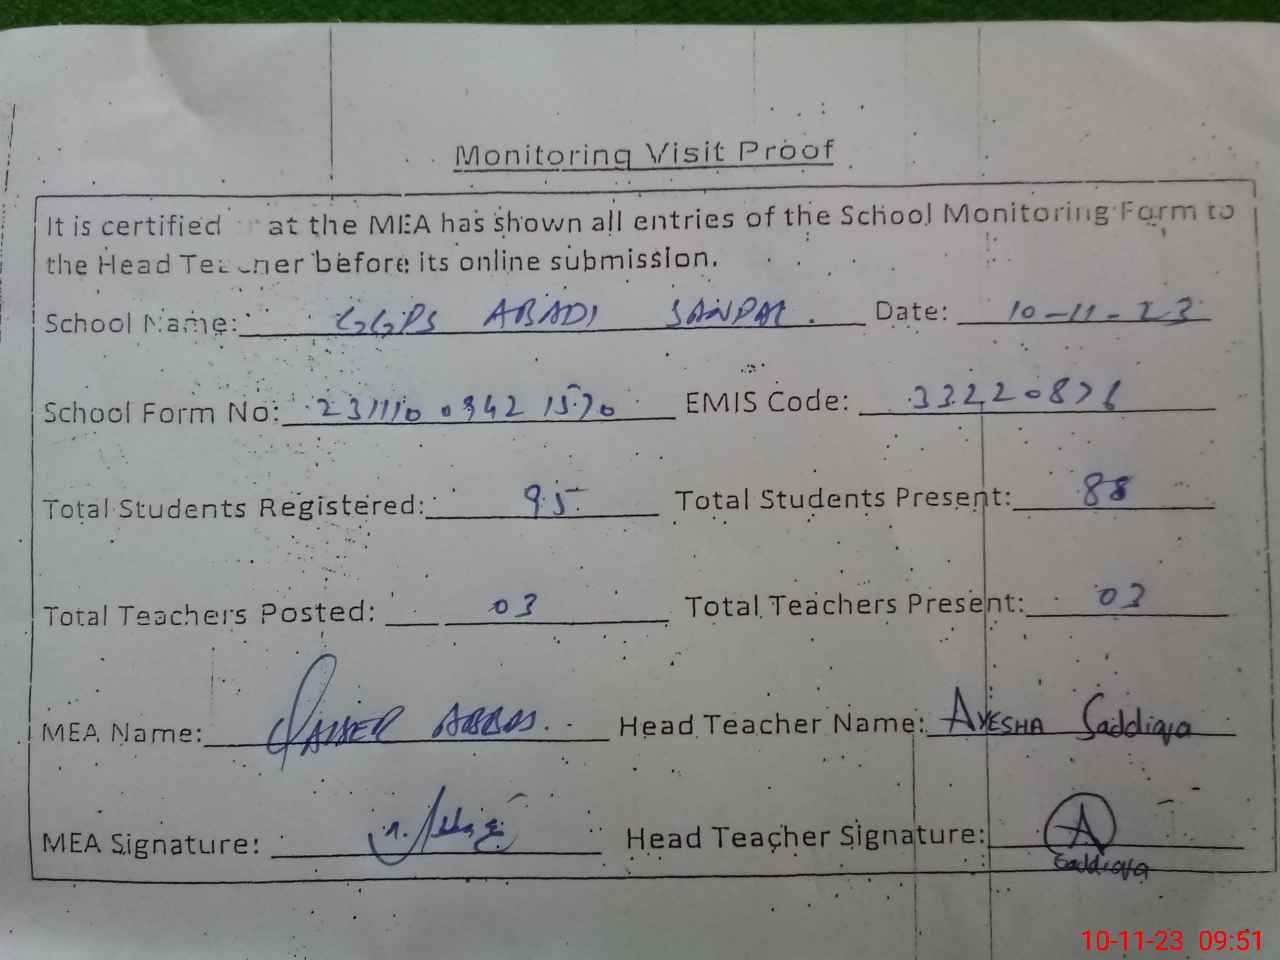 Monitoring Visit Proof
It is certified at the MEA has shown all entries of the School Monitoring Form to
the Head Teacher before its online submission.
School Name: GGPS ABADI SANPAL. Date: 10-11-23
School Form No: 231110 0942 1570 EMIS Code: 33220876
Total Students Registered: 95 Total Students Present: 88
Total Teachers Posted: 03 Total Teachers Present: 03
MEA Name: QAISER ABBAS. Head Teacher Name: AYESHA Saddiqa
MEA Signature: Head Teacher Signature: A
Saddiqa
10-11-23 09:51